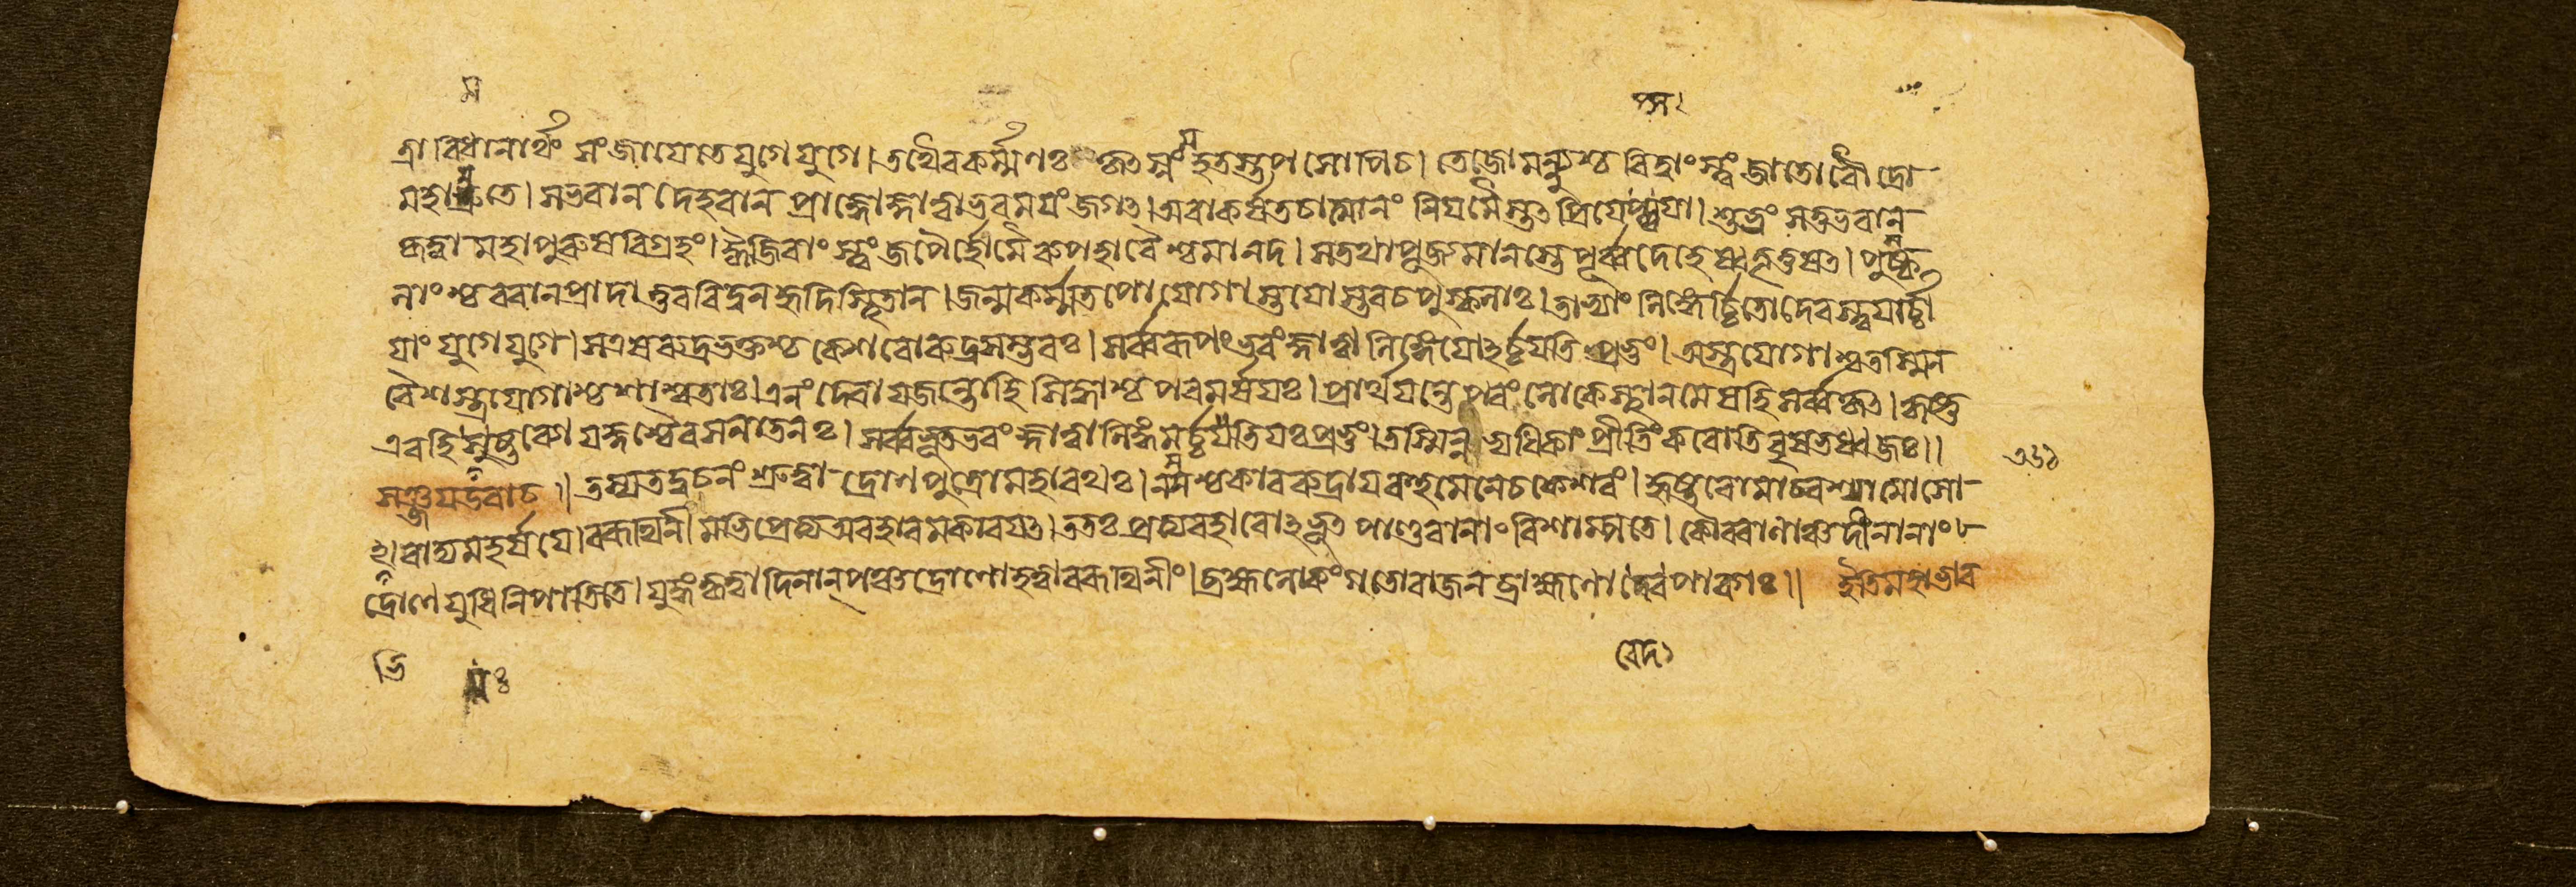 স
ম্স২
ত্রা বিধানার্থং সংজায়েতে যুগে যুগে। তথৈবকর্ম্মণঃ কৃৎস্নং হৃতস্তপসোপিচ। তেজোমন্যুশ্চ বিদ্বাংস্ত্বং জাতোরৌদ্রো
মহামতে। সভবান দেহবান প্রাজ্ঞোজ্ঞাত্বাভবময়ং জগৎ। অবাকর্ষতচাত্মানং নিয়মৈস্তৎ প্রিয়েপ্স্বয়া। শুভ্রং সতুভবান
কৃত্বা মহাপুরুষবিগ্রহং। জপৈর্হোমৈরুপহারৈশ্চমানদ। সতথাপূজ্যমানস্তে পূর্ব্বদেহেষ্বতূতুষৎ। পুষ্ক
নাংশ্চ বরানপ্রাদা ত্তববিদ্বনহৃদিস্থিতান। জন্মকর্ম্মতপোযোগা স্তয়োস্তবচপুষ্কলাঃ। তাভ্যাং লিঙ্গের্চ্চিতোদেবস্ত্বয়ার্চ্চা
য়াং যুগে যুগে। সএষরুদ্রভক্তশ্চ কেশবোরুদ্রসম্ভবঃ। সর্ব্বরূপংভবংজ্ঞাত্বা লিঙ্গেযোঽর্চ্চয়তি প্রভুং। অস্ত্রযোগাশ্চতস্মিন
বৈশস্ত্রযোগাশ্চশাশ্বতাঃ। এনং দেবা যজন্তোহি সিদ্ধাশ্চ পরমর্ষয়ঃ। প্রার্থয়ন্তে পরং লোকেস্থানমেষহি সর্ব্বকৃৎ। কৃষ্ণস্তু
এবহিসৃষ্টব্যো যজ্ঞশ্চৈবসনাতনঃ। সর্ব্বভূতভবংজ্ঞাত্বা লিঙ্গমর্চ্চয়তিযঃপ্রভুং। তস্মিন্ন ভ্যধিকাং প্রীতিংকরোতিবৃষভধ্বজঃ॥
সঞ্জয়উবাচ॥ তস্যতদ্বচনং শ্রুত্বা দ্রোণপুত্রোমহারথঃ। নমশ্চকাররুদ্রায়বহুমেনেচকেশবং। হৃষ্টরোমাচবশ্যাত্মাসো
ঽভিবাদ্যমহর্ষয়ে। বরূথিনী মভিপ্রেক্ষ্য অবহারমকারয়ৎ। ততঃ প্রত্যবহারোঽভূৎ পাণ্ডবানাং বিশাম্পতে। কৌরবাণাঞ্চদীনানাং
দ্রোণে যুধিনিপাতিতে। যুদ্ধংকৃত্বা দিনানপঞ্চদ্রোণোহত্বাবরূথিনীং। ব্রহ্মলোকংগতোরাজনব্রাহ্মণোবেদপারগঃ॥ ইতিমহাভার
ভি
মঃ
বেদ১